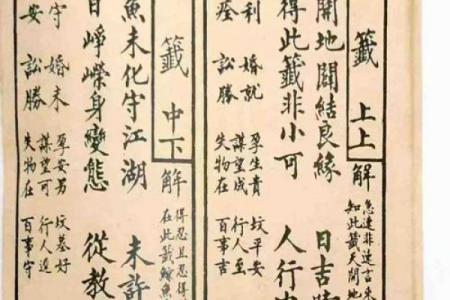 籤 上上 解
知此籤天開地
開地闢結良緣 日吉
得此籤非小可 人行中
利 婚就 孕生貴 坟平安
謀望成 行人至
痊 訟勝 失物在 百事吉
籤 中下 解
得忍且忍得
在此籤
魚未化守江湖 未許
日崢嶸身變態 從教
守 婚未 孕安男 坟墓好
謀望成 行人
安 訟勝 失物在 百事守